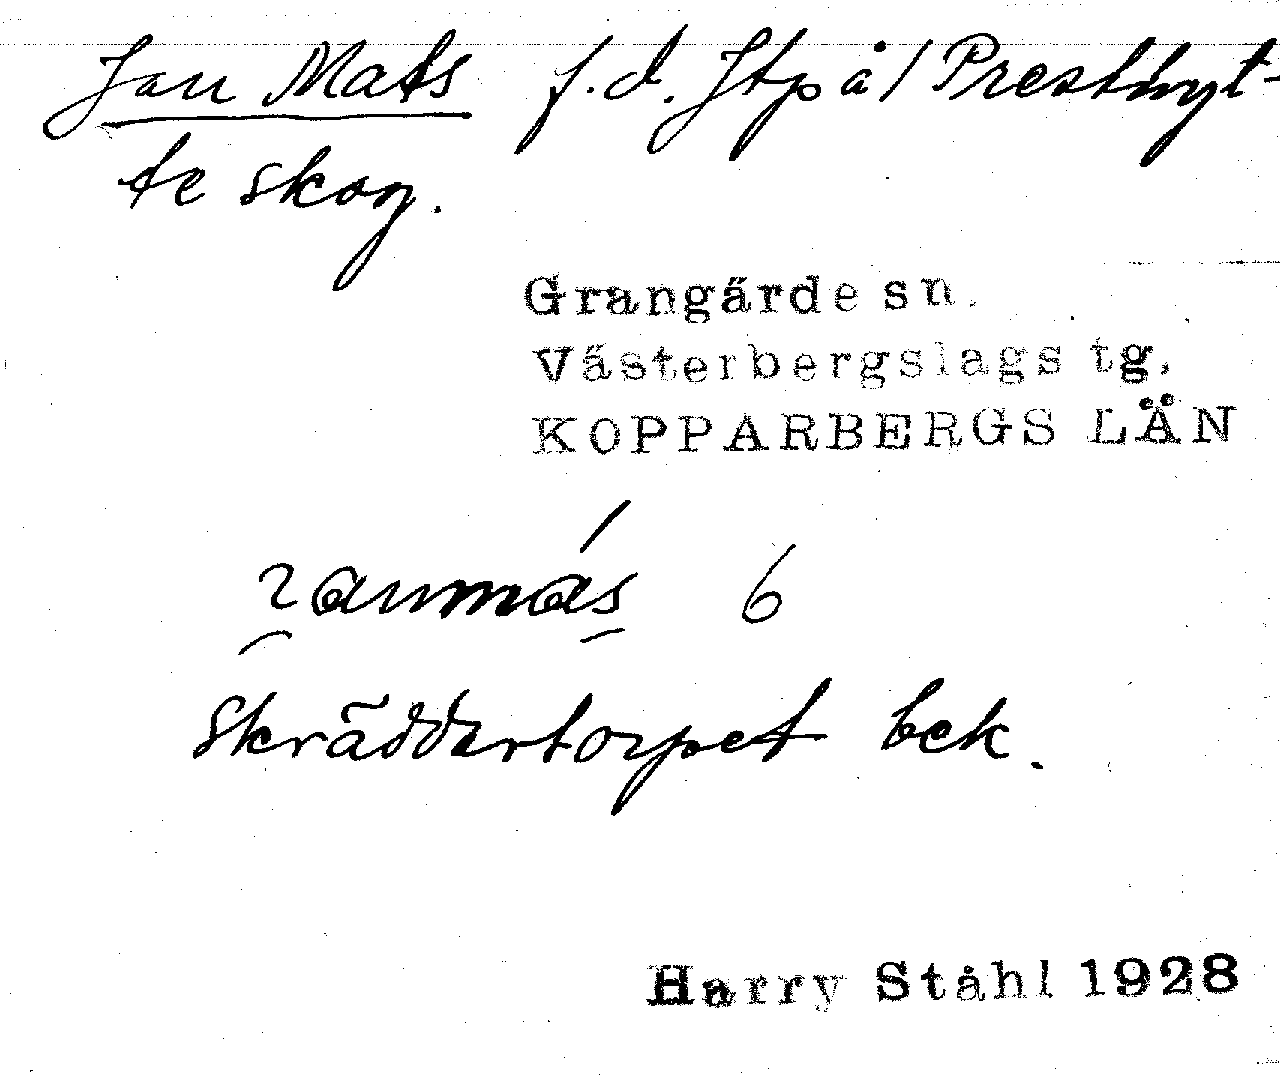 Jan Mats f.d. Jtp å/Presthyt-
te skog.
Grangärde sn.
Västerbergslags tg,
KOPPARBERGS LÄN
ɿanmás 6
skräddertorpet bek.
Harry Ståhl 1928